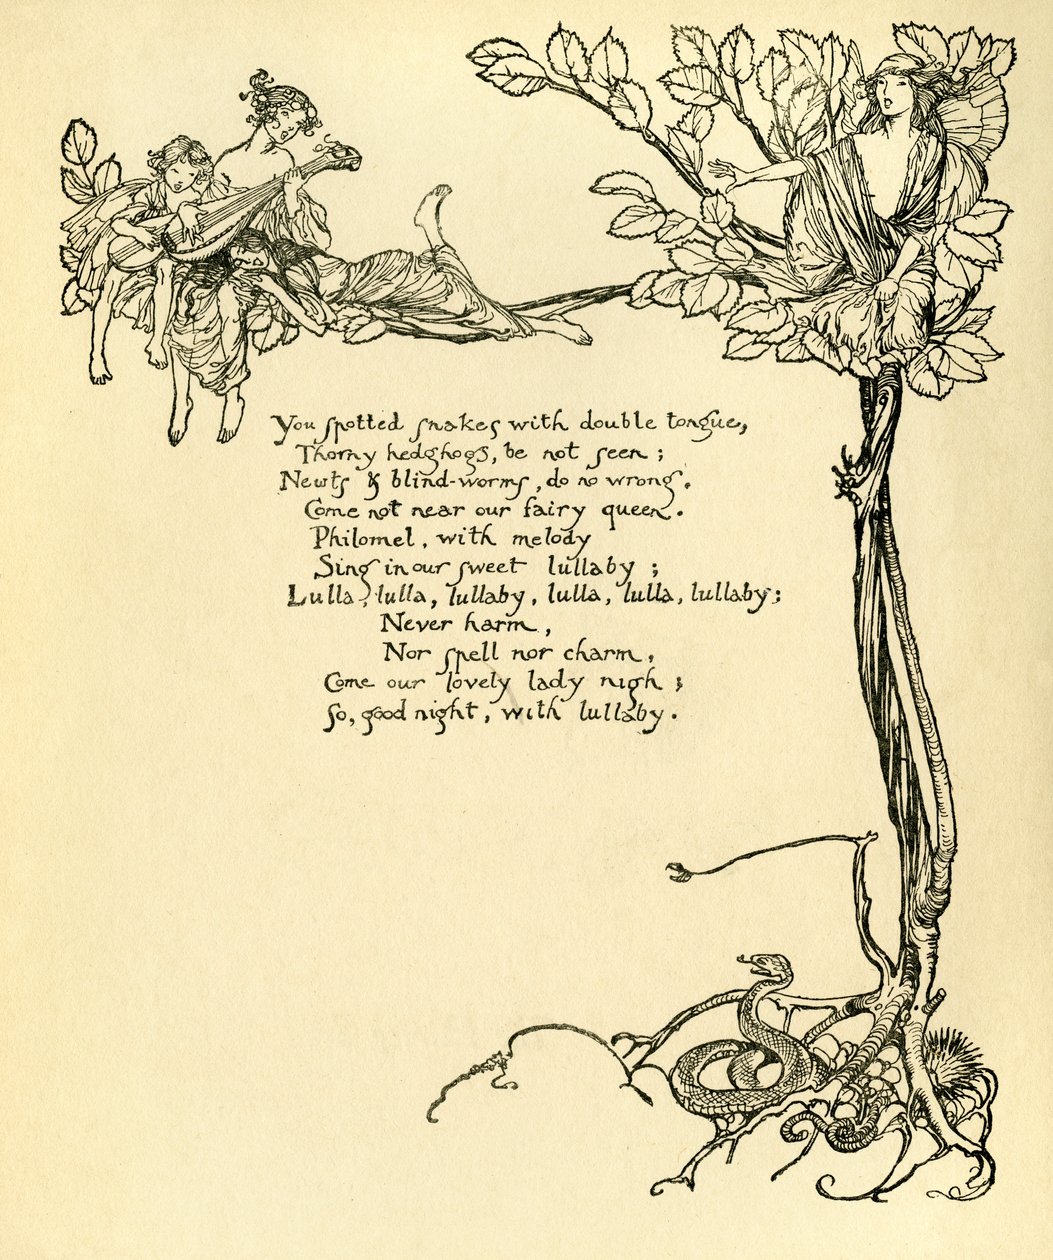 You spotted snakes with double tongue,
Thorny hedghogs, be not seen;
Newts & blind-worms, do no wrong.
Come not near our fairy queen.
Philomel, with melody
Sing in our sweet lullaby;
Lulla, lulla, lullaby, lulla, lulla, lullaby;
Never harm,
Nor spell nor charm,
Come our lovely lady nigh;
So, good night, with lullaby.